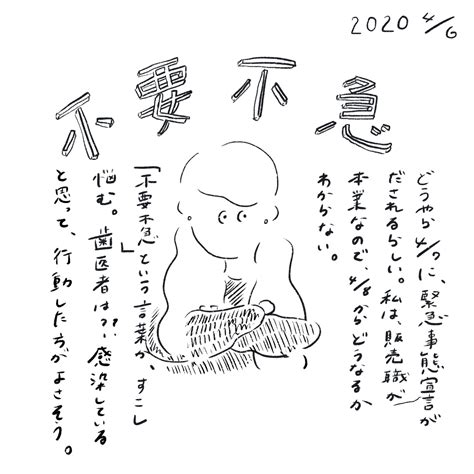 2020 4/6
不要不急
どうやら4/7に、緊急事態宣言が
だされるらしい。私は、販売職が
本業なので、4/8からどうなるか
わからない。
「不要不急」という言葉が、すこし
悩む。歯医者は??感染している
と思って、行動した方がよさそう。